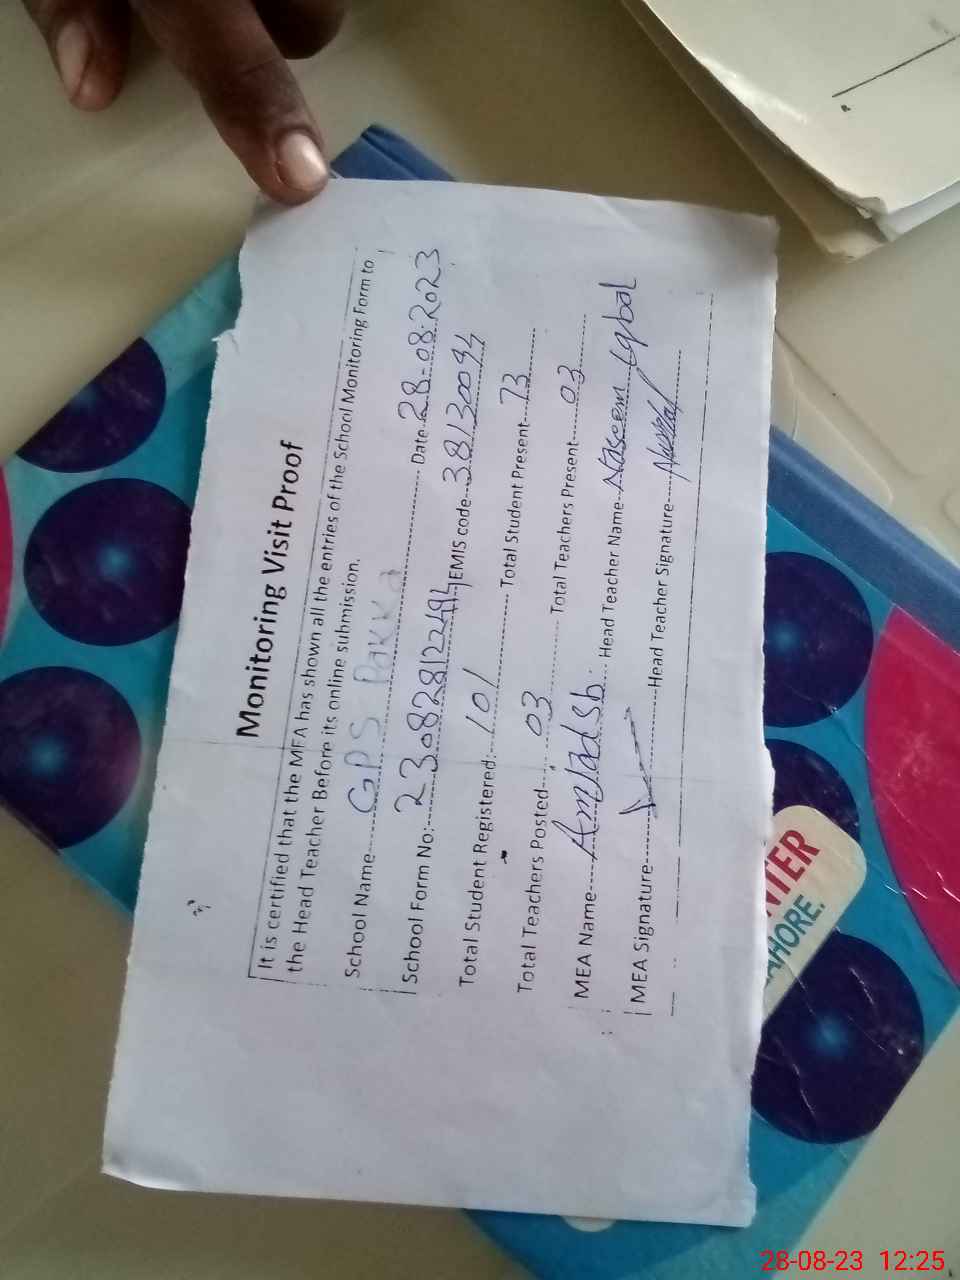 Monitoring Visit Proof
It is certified that the MEA has shown all the entries of the School Monitoring Form to
the Head Teacher Before its online submission.
School Name---- GPS Pakka ---- Date 28-08-2023
School Form No:---- EMIS code---38130094
Total Student Registered:--- 101 ---- Total Student Present--- 73
Total Teachers Posted---- 03 ---- Total Teachers Present---- 03
MEA Name---- Amjad sb ---- Head Teacher Name-- Naseem Iqbal
MEA Signature---- Head Teacher Signature----
NTER
AHORE.
28-08-23 12:25